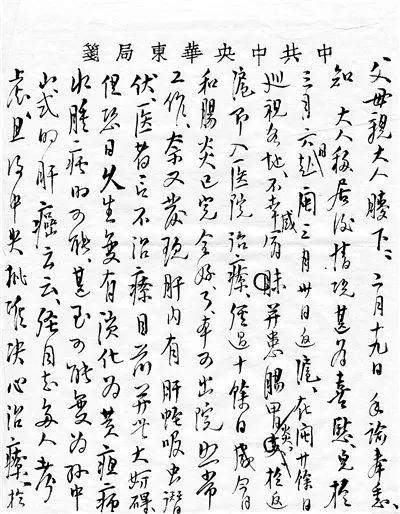 中共中央華東局箋
父母親大人膝下：二月十九日手諭奉悉，
知 大人移居後情况甚为喜慰，兒於
三月六日赴閩三月卅日返滬，在閩廿條日
巡視各地，不幸感并患腸胃炎，於返
滬即入医院治療，經過十條日感冒
和腸炎已完全好了，本可出院照常
工作，奈又發現肝内有肝蛭吸虫潛
伏，医者言不治療目前并无大妨碍
但恐日久生變有演化为黄疸病
水腫病的可能，甚至可能變为孙中
山式的肝癌云云，經同志多人考
慮，且得中央批准决心治療，於